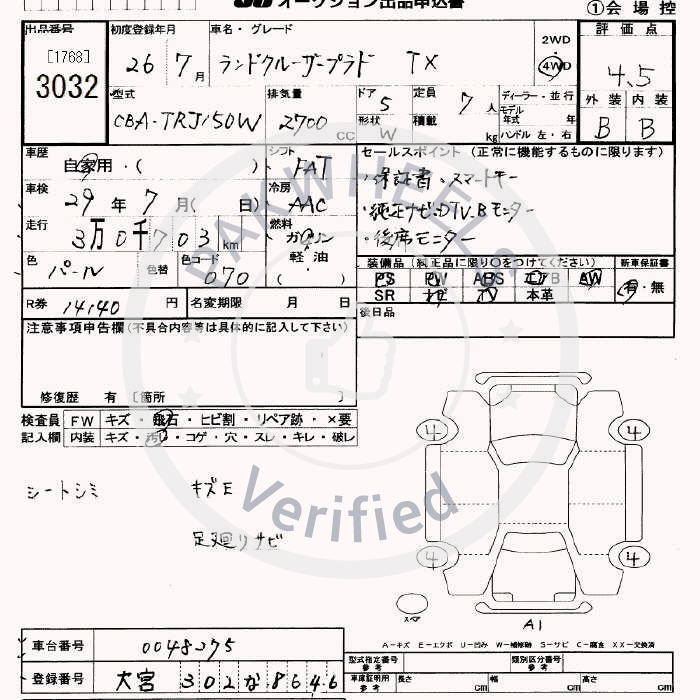 オークション出品申込書
①会場控
出品番号
[1768]
3032
初度登録年月
26 7月
車名・グレード
ランドクルーザープラド TX
2WD
・
4WD
評価点
4.5
外装 内装
B B
型式
CBA-TRJ150W
排気量
2700
CC
ドア
5
形状
W
定員
7人
積載
kg
ディーラー・並行
モデル
年式 年
ハンドル 左・右
車歴
自家用・( )
シフト
FAT
セールスポイント(正常に機能するものに限ります)
・保証書、スマートキー
・純正ナビ、DTV、Bモニター
・後席モニター
車検
29年 7月( 日)
冷房
AAC
走行
3万0千703km
燃料
ガソリン
・
軽油
( )
色
パール
色替
色コード
070
装備品(純正品に限り○をつけてください)
PS PW ABS エアB AW
SR ナビ TV 本革
新車保証書
有・無
R券 14140円
名変期限 月 日
後日品
注意事項申告欄(不具合内容等は具体的に記入して下さい)
修復歴 有〔箇所 〕
検査員
記入欄
FW キズ・飛石・ヒビ割・リペア跡・×要
内装 キズ・汚れ・コゲ・穴・スレ・キレ・破レ
シートシミ キズE
足廻りサビ
4 4
4 4
スペア
A1
A=キズ E=エクボ U=凹み W=補修跡 S=サビ C=腐食 XX=交換済
車台番号 0048275
登録番号 大宮 302 な 8646
型式指定番号
参考
類別区分番号
参考
車庫証明用
参考
長さ cm
幅 cm
高さ cm
PAKWHEELS
Verified